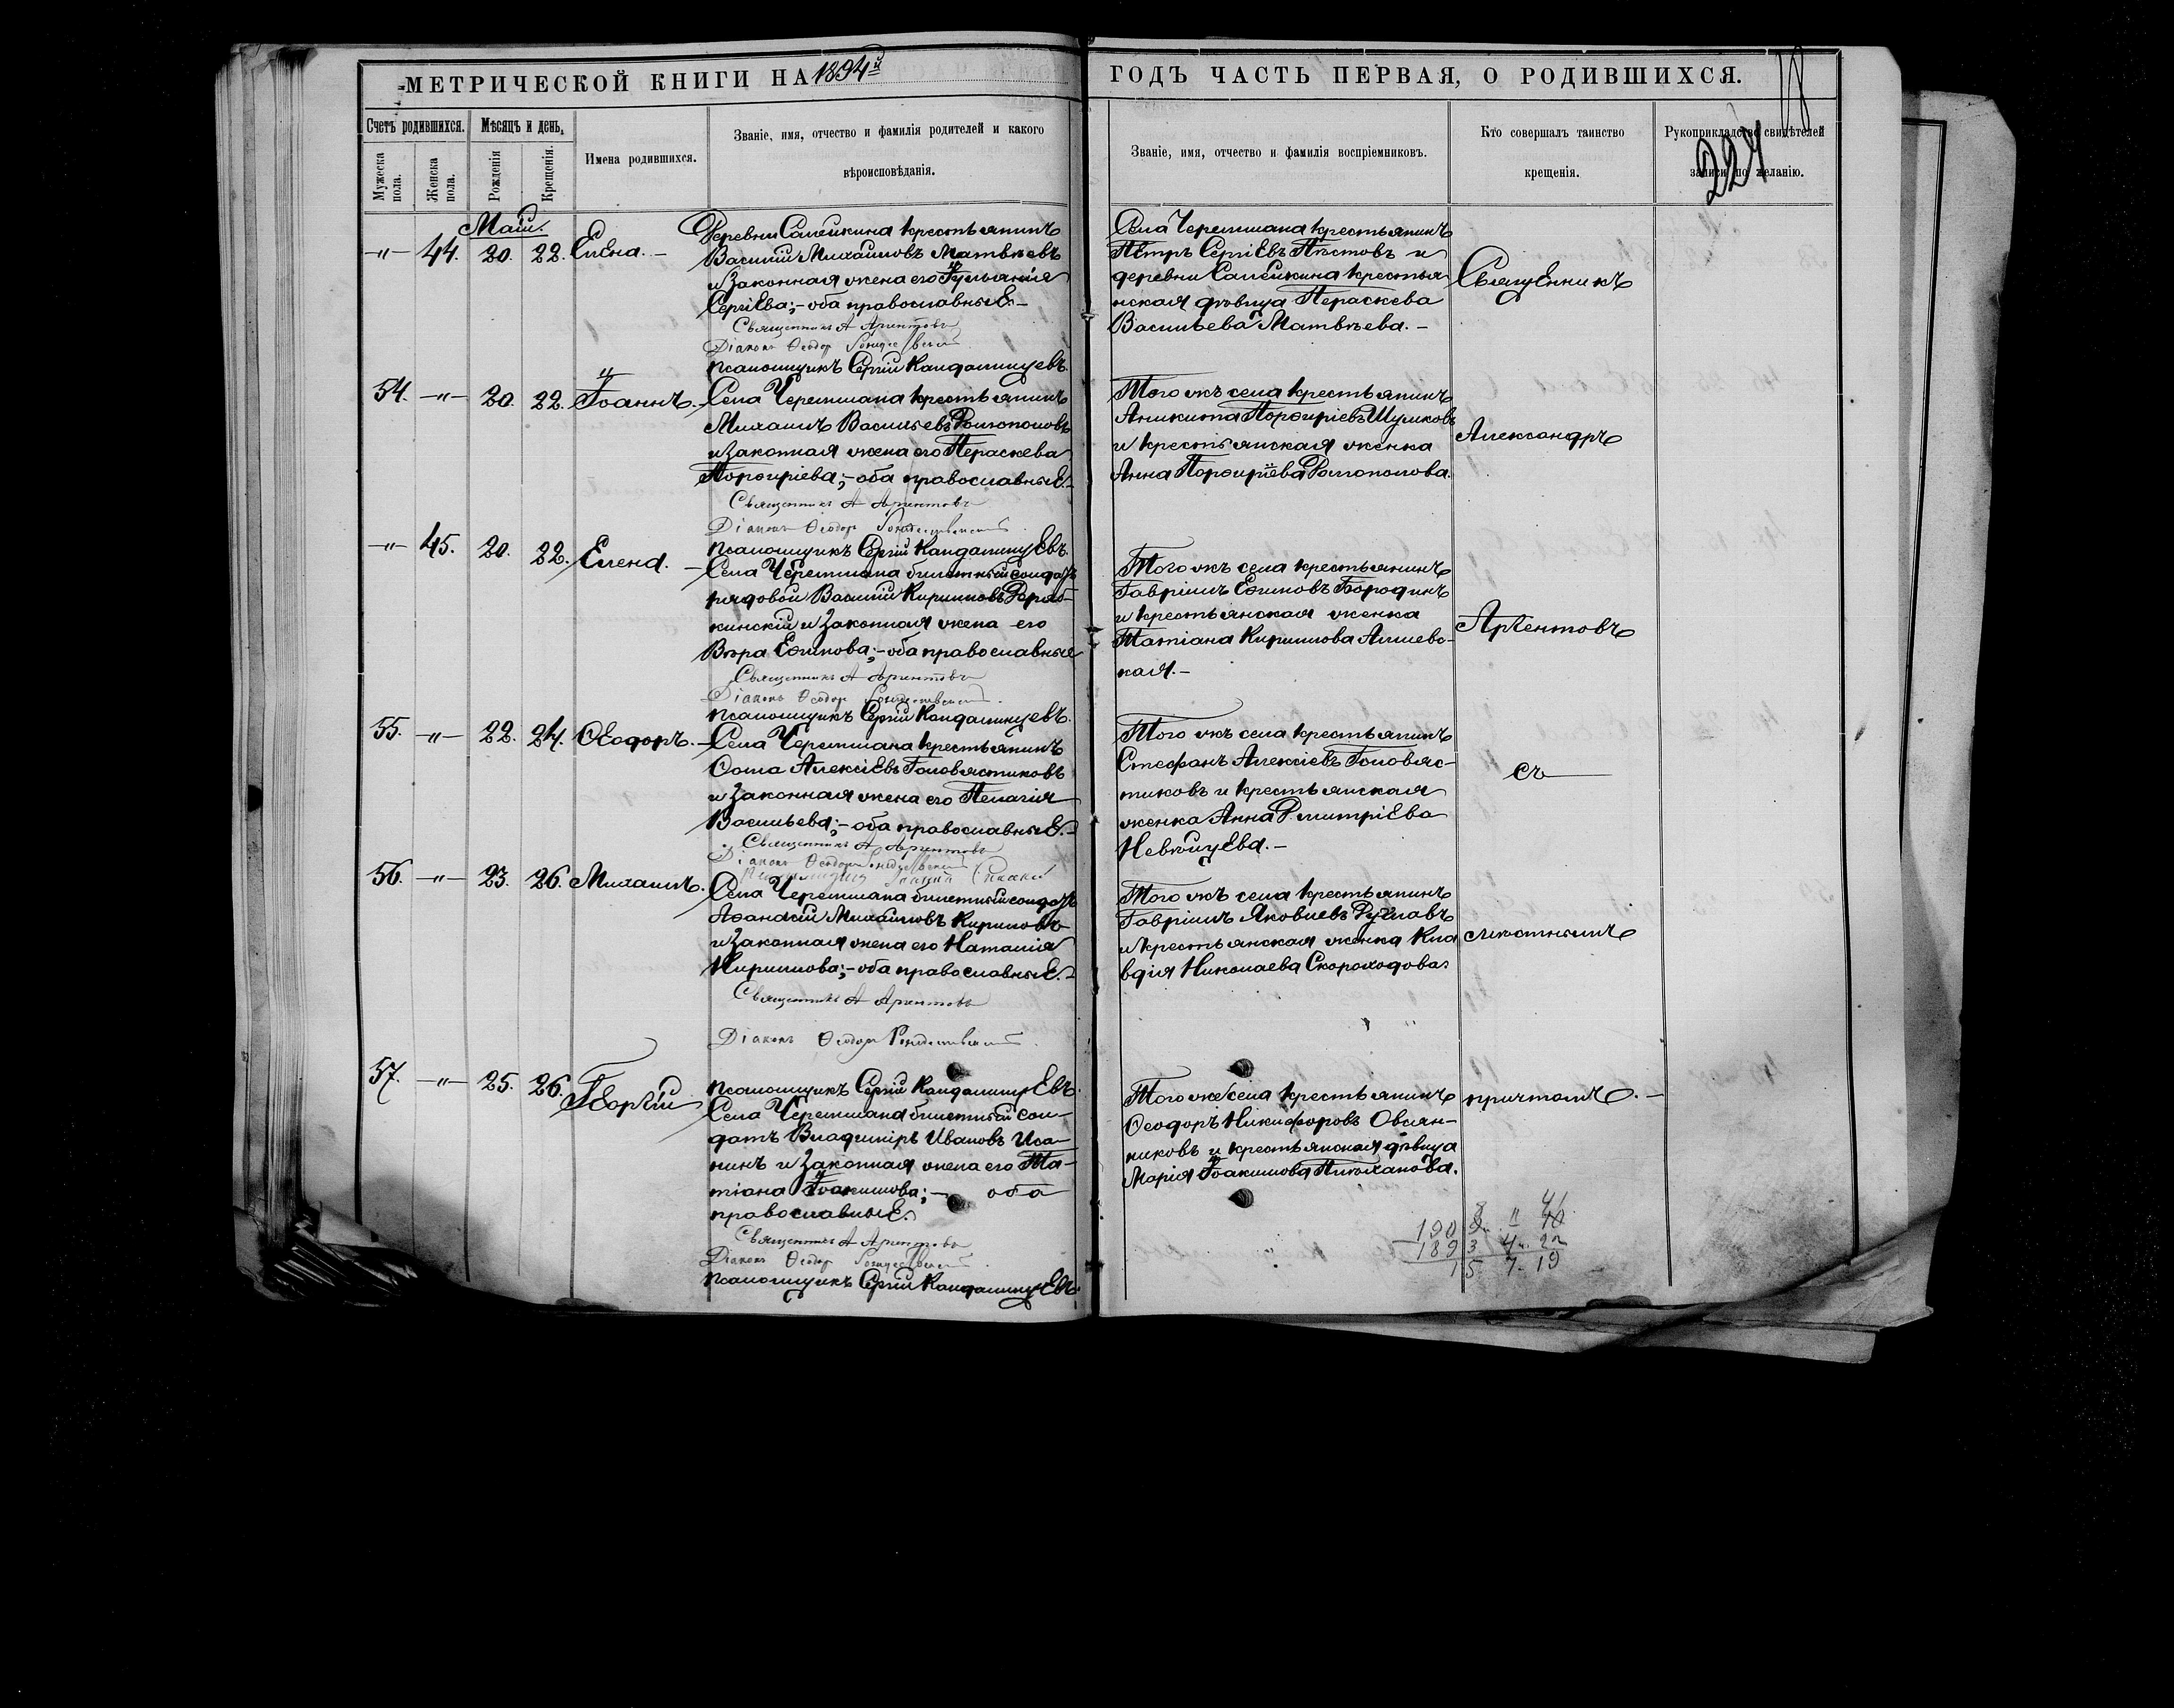 МЕТРИЧЕСКОЙ КНИГИ НА 1894й
ГОДЪ ЧАСТЬ ПЕРВАЯ, О РОДИВШИХСЯ.
224
Счетъ родившихся.
Мѣсяцъ и день.
Мужеска пола.
Женска пола.
Рожденія
Крещенія.
Имена родившихся.
Званіе, имя, отчество и фамилія родителей и какого
вѣроисповѣданія.
Званіе, имя, отчество и фамилія воспріемниковъ.
Кто совершалъ таинство
крещенія.
Рукоприкладство свидѣтелей
записи по желанію.
Май.
-"- 44. 20. 22. Елена. -
Деревни Салейкина крестьянинъ
Василій Михаиловъ Матвѣевъ
и законная жена его Іульянія
Сергіева; - оба православные. -
Священникъ А Аристовъ
Діаконъ Ѳеодор Рождественскій
псаломщикъ Сергій Кандалинцевъ.
Села Черемшана крестьянинъ
Петръ Сергіевъ Пестовъ и
деревни Салейкина крестья
нская дѣвица Параскева
Васильева Матвѣева. -
Священникъ
54. -"- 20. 22. Іоаннъ. -
Села Черемшана крестьянинъ
Михаилъ Васильевъ Долгополовъ
и законная жена его Параскева
Порфиріева; - оба православные. -
Священникъ А Аристовъ
Діаконъ Ѳеодор Рождественскій
псаломщикъ Сергій Кандалинцевъ.
Того жъ села крестьянинъ
Аникита Порфиріевъ Шушковъ
и крестьянская женка
Анна Порфиріева Долгополова.
Александръ
-"- 45. 20. 22. Елена. -
Села Черемшана билетный солдатъ
рядовой Василій Кириловъ
кинскій и законная жена его
Вѣра Еѳимова; - оба православные
Священникъ А Аристовъ
Діаконъ Ѳеодор Рождественскій.
псаломщикъ Сергій Кандалинцевъ.
Того жъ села крестьянинъ
Гавріилъ Еѳимовъ Бородинъ
и крестьянская женка
Татіана Кирилова Алшевс-
кая. -
55. -"- 22. 24. Ѳеодоръ. -
Села Черемшана крестьянинъ
Ѳома Алексіевъ Головястиковъ
и законная жена его Пелагія
Васильева; - оба православные. -
Священникъ А Аристовъ
Діаконъ Ѳеодор Рождественскій
Того жъ села крестьянинъ
Стефанъ Алексіевъ Головяс-
тиковъ и крестьянская
женка Анна Дмитріева
Невлицева. -
съ
56. -"- 23. 26. Михаилъ.
Села Черемшана билетный солдатъ
Аѳанасій Михаиловъ Кириловъ
и законная жена его Наталія
Кирилова; - оба православные. -
Священникъ А Аристовъ
Діаконъ Ѳеодор Рождественскій.
псаломщикъ Сергій Кандалинцевъ.
Того жъ села крестьянинъ
Гавріилъ Яковлевъ
и крестьянская женка Кла
вдія Николаева Скороходова.
мѣстнымъ
57. -"- 25. 26. Георгій
Села Черемшана билетный сол-
датъ Владиміръ Ивановъ Иса-
кинъ и законная жена его Та-
тіана Іоакимова; - оба
православные.
Священникъ А Аристовъ
Діаконъ Ѳеодор Рождественскій.
псаломщикъ Сергій Кандалинцевъ
Того же села крестьянинъ
Ѳеодоръ Никифоровъ Овсян-
никовъ и крестьянская дѣвица
Марія Іоакимова
причтомъ. -